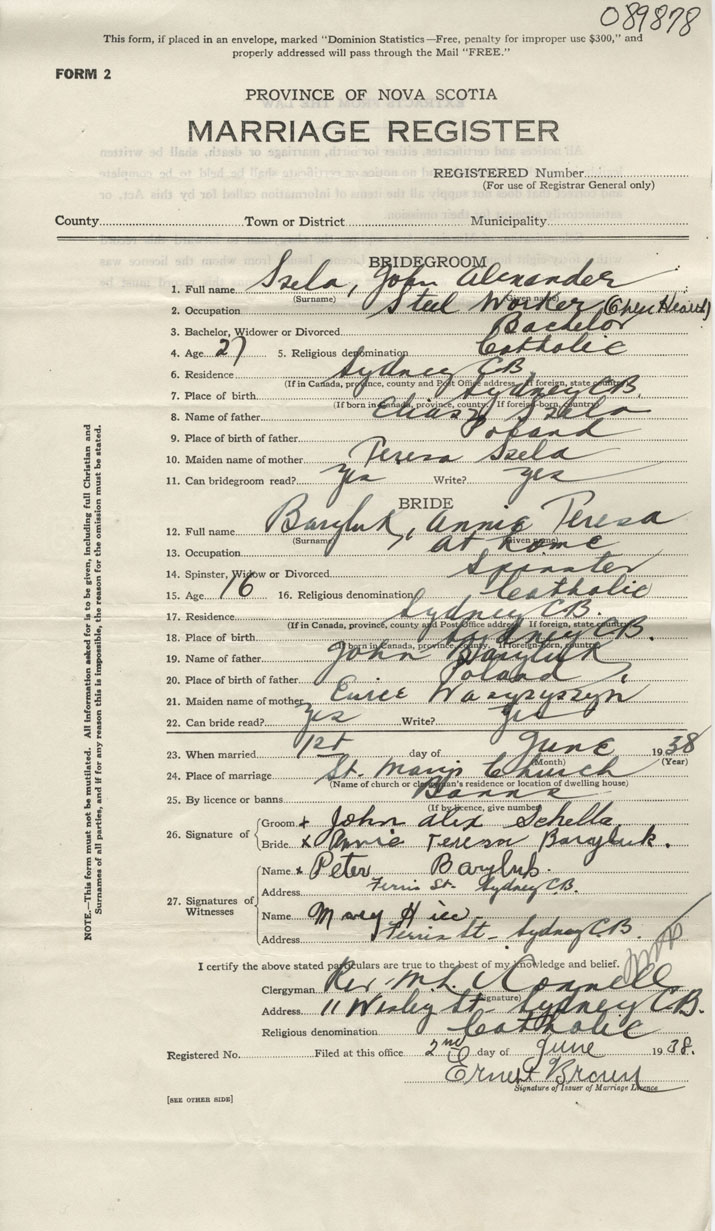 089878
This form, if placed in an envelope, marked "Dominion Statistics—Free, penalty for improper use $300," and
properly addressed will pass through the Mail "FREE."
FORM 2
PROVINCE OF NOVA SCOTIA
MARRIAGE REGISTER
REGISTERED Number
(For use of Registrar General only)
County Town or District Municipality
BRIDEGROOM
1. Full name Szela, John Alexander
(Surname) (Given name)
2. Occupation Steel Worker (Open Hearth)
3. Bachelor, Widower or Divorced Bachelor
4. Age 27 5. Religious denomination Catholic
6. Residence Sydney C.B.
(If in Canada, province, county and Post Office address. If foreign, state country)
7. Place of birth Sydney C.B.
(If born in Canada, province, county. If foreign-born, country)
8. Name of father Szela
9. Place of birth of father Poland
10. Maiden name of mother Teresa Szela
11. Can bridegroom read? Yes Write? Yes
BRIDE
12. Full name Baryluk, Annie Teresa
(Surname) (Given name)
13. Occupation at home
14. Spinster, Widow or Divorced Spinster
15. Age 16 16. Religious denomination Catholic
17. Residence Sydney C.B.
(If in Canada, province, county and Post Office address. If foreign, state country)
18. Place of birth Sydney C.B.
(If born in Canada, province, county. If foreign-born, country)
19. Name of father John Baryluk
20. Place of birth of father Poland
21. Maiden name of mother
22. Can bride read? Yes Write? Yes
23. When married 1st day of June 1938
(Month) (Year)
24. Place of marriage St. Mary's Church
(Name of church or clergyman's residence or location of dwelling house)
25. By licence or banns Banns
(If by licence, give number)
26. Signature of Groom x John Alex Schella
Bride x Annie Teresa Baryluk.
Name x Peter Baryluk.
Address Ferris St. Sydney C.B.
27. Signatures of Witnesses
Name Mary
Address Ferris St- Sydney C.B.
I certify the above stated particulars are true to the best of my knowledge and belief.
Clergyman Rev M.
(Signature)
Address 11 Wesley St- Sydney C.B.
Religious denomination Catholic
Registered No. Filed at this office 2nd day of June 1938.
Ernest Brown
Signature of Issuer of Marriage Licence
[SEE OTHER SIDE]
NOTE.—This form must not be mutilated. All information asked for is to be given, including full Christian and
Surnames of all parties, and if for any reason this is impossible, the reason for the omission must be stated.